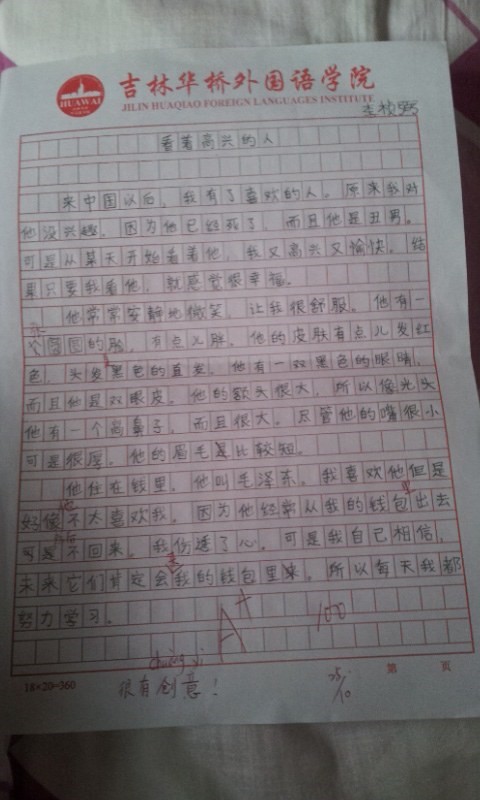 吉林华桥外国语学院
HUAWAI
JILIN HUAQIAO FOREIGN LANGUAGES INSTITUTE
李桢野
看着高兴的人
来中国以后，我有了喜欢的人。原来我对
他没兴趣。因为他已经死了，而且他是丑男。
可是从某天开始看着他，我又高兴又愉快。结
果只要我看他，就感觉很幸福。
他常常安静地微笑，让我很舒服。他有一
个圆圆的脸，有点儿胖。他的皮肤有点儿发红
色，头发黑色的直发。他有一双黑色的眼睛，
而且他是双眼皮。他的额头很大，所以像光头
他有一个高鼻子，而且很大。尽管他的嘴很小
可是很厚。他的眉毛是比较短。
他住在钱里，他叫毛泽东。我喜欢他但是
好像他不太喜欢我。因为他经常从我的钱包里出去
可是不回来。我伤透了心。可是我自己相信，
未来它们肯定会来我的钱包里来。所以每天我都
努力学习。
A+
100
chuàng yì
很有创意！
25/10
18×20=360
第 页